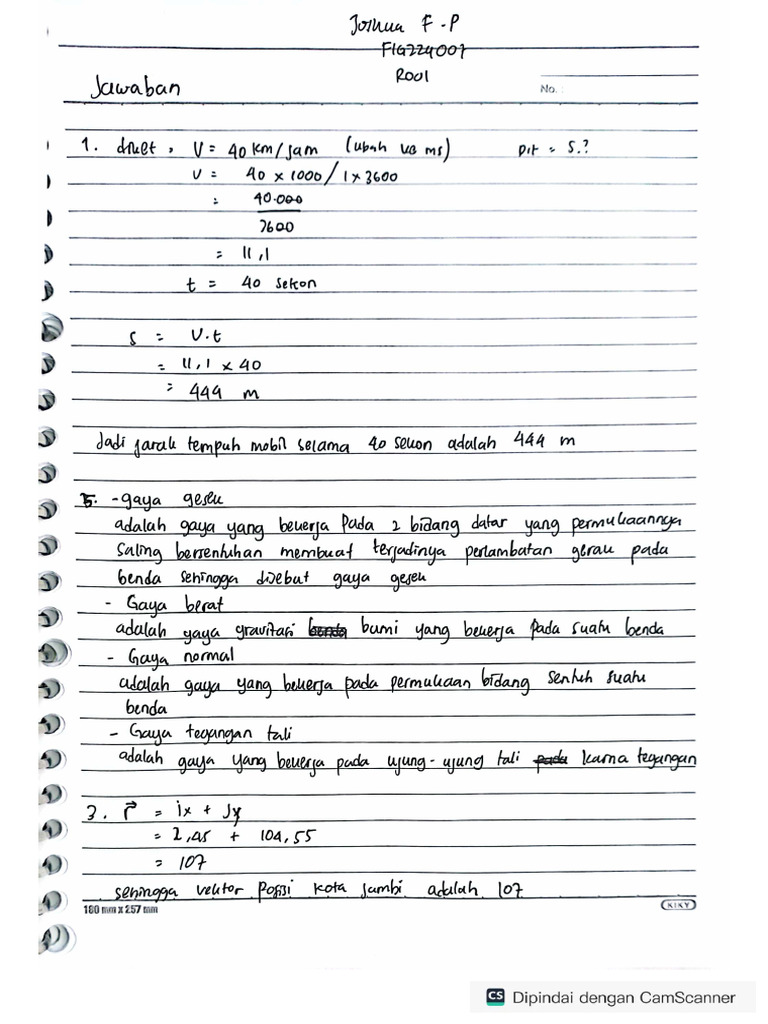 Joshua F.P
F1G224007
R001
Jawaban
No. :
1. diket, V = 40 km/jam (Ubah ke ms) Dit = S.?
V = 40 x 1000 / 1 x 3600
= 40.000
3600
= 11,1
t = 40 sekon
S = V.t
= 11,1 x 40
= 444 m
Jadi jarak tempuh mobil selama 40 sekon adalah 444 m
5. - gaya gesek
adalah gaya yang bekerja Pada 2 bidang datar yang permukaannya
Saling bersentuhan membuat terjadinya perlambatan gerak pada
benda sehingga disebut gaya gesek
- Gaya berat
adalah yaya gravitasi benda bumi yang bekerja pada suatu benda
- Gaya normal
adalah gaya yang bekerja pada permukaan bidang sentuh suatu
benda
- Gaya tegangan tali
adalah gaya yang bekerja pada ujung-ujung tali pada karna tegangan
3. r⃗ = ix + Jy
= 2,45 + 104,55
= 107
sehingga vektor posisi kota jambi adalah 107
180 mm x 257 mm
KIKY
CS Dipindai dengan CamScanner